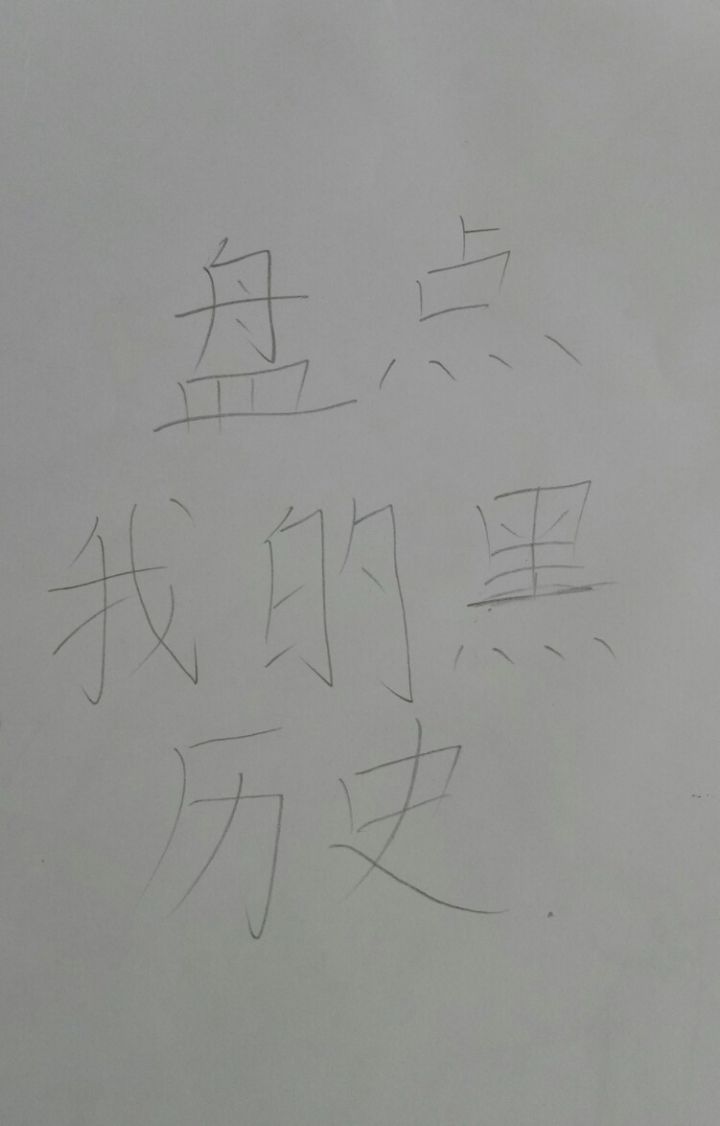 盘点
我的黑
历史.